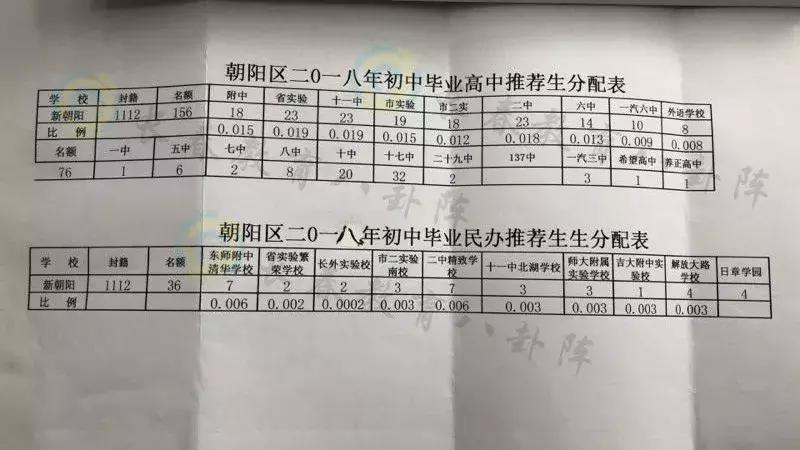 朝阳区二0一八年初中毕业高中推荐生分配表
学 校 封籍 名额 附中 省实验 十一中 市实验 市二实 二中 六中 一汽六中 外语学校
新朝阳 1112 156 18 23 23 19 18 23 14 10 8
比 例 0.015 0.019 0.019 0.015 0.012 0.018 0.013 0.009 0.008
名额 一中 五中 七中 八中 十中 十七中 二十九中 137中 一汽三中 希望高中 养正高中
76 1 6 2 8 20 32 2 3 1 1
朝阳区二0一八年初中毕业民办推荐生生分配表
学 校 封籍 名额 东师附中清华学校 省实验繁荣学校 长外实验校 市二实验南校 二中精致学校 十一中北湖学校 师大附属实验学校 吉大附中实验校 解放大路学校 日章学园
新朝阳 1112 36 7 2 2 3 7 3 3 1 4 4
比 例 0.006 0.002 0.0002 0.003 0.006 0.003 0.003 0.003 0.003
长春教育八卦阵
长春教育八卦阵